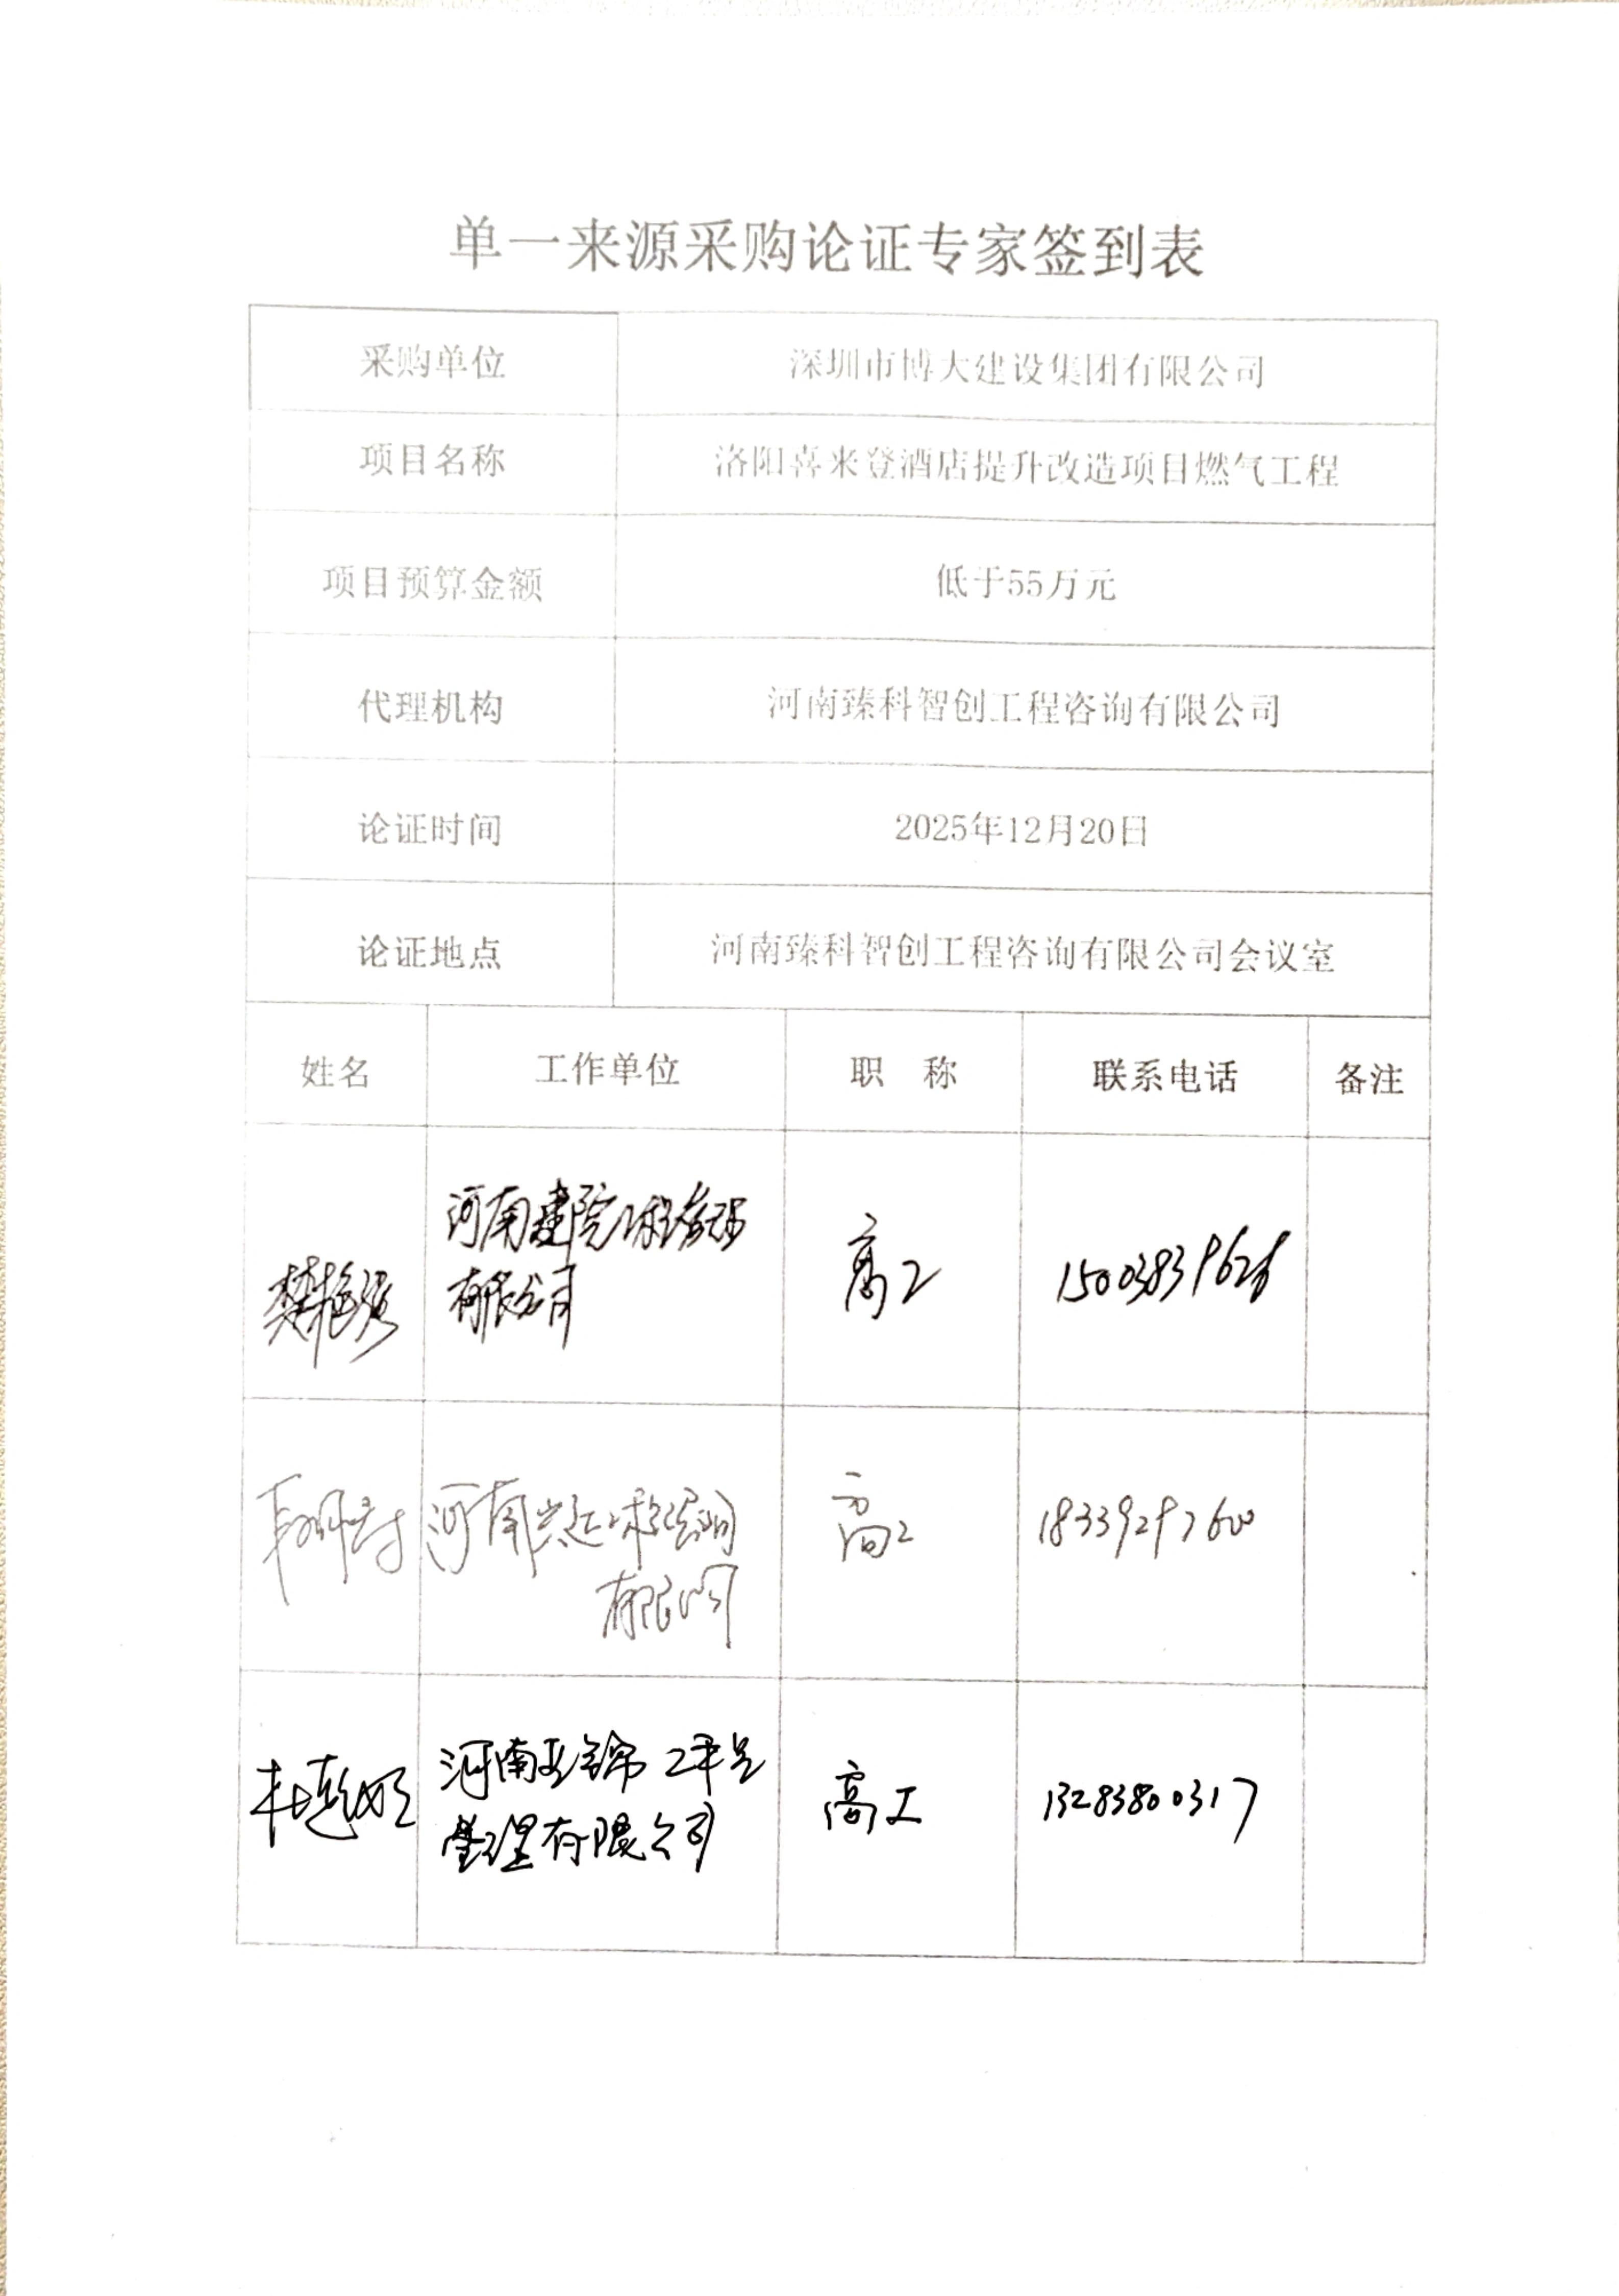 单一来源采购论证专家签到表
采购单位 深圳市博大建设集团有限公司
项目名称 洛阳喜来登酒店提升改造项目燃气工程
项目预算金额 低于55万元
代理机构 河南臻科智创工程咨询有限公司
论证时间 2025年12月20日
论证地点 河南臻科智创工程咨询有限公司会议室
姓名 工作单位 职 称 联系电话 备注
河南建院工程咨询
有限公司
高工
河南 工程咨询 高工
有限公司
河南 锦工程 高工 13283800317
管理有限公司